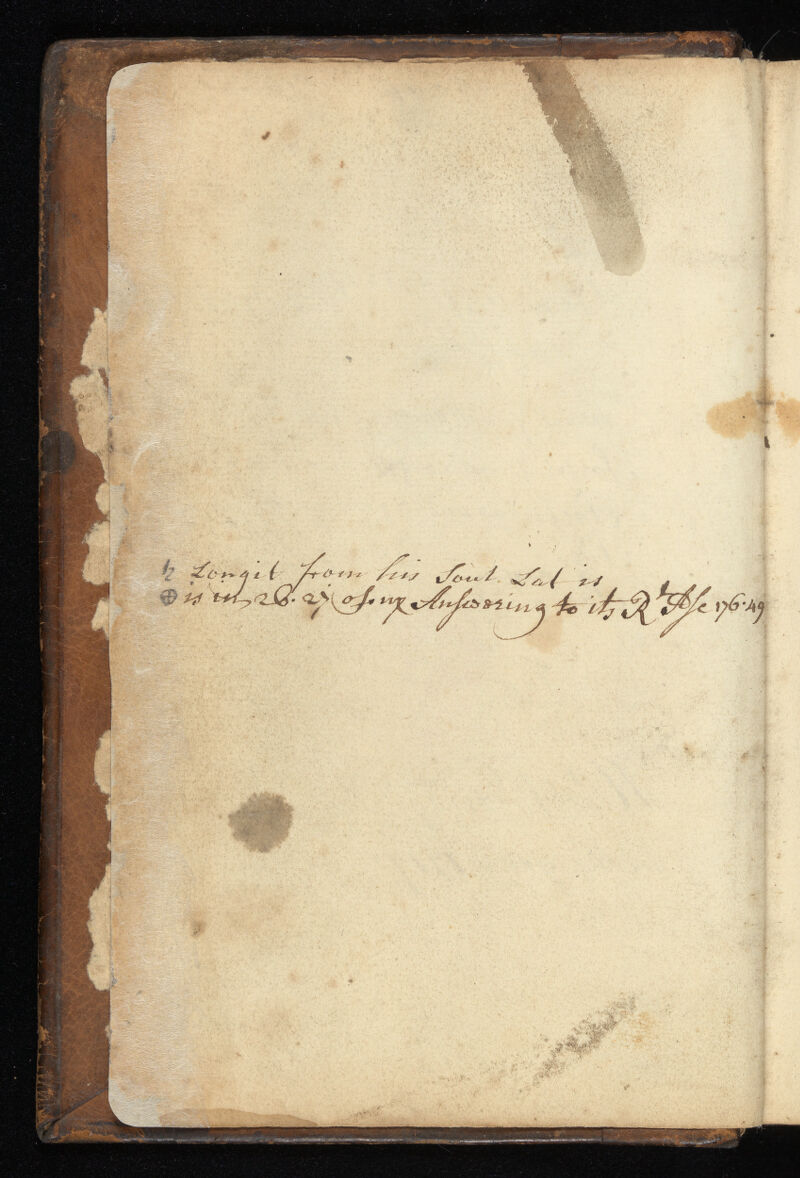 ♄ Longit from his Sout. Lat is
⊕ is in 26. 27 of ♍ Answering to its Rt Asc 176.49